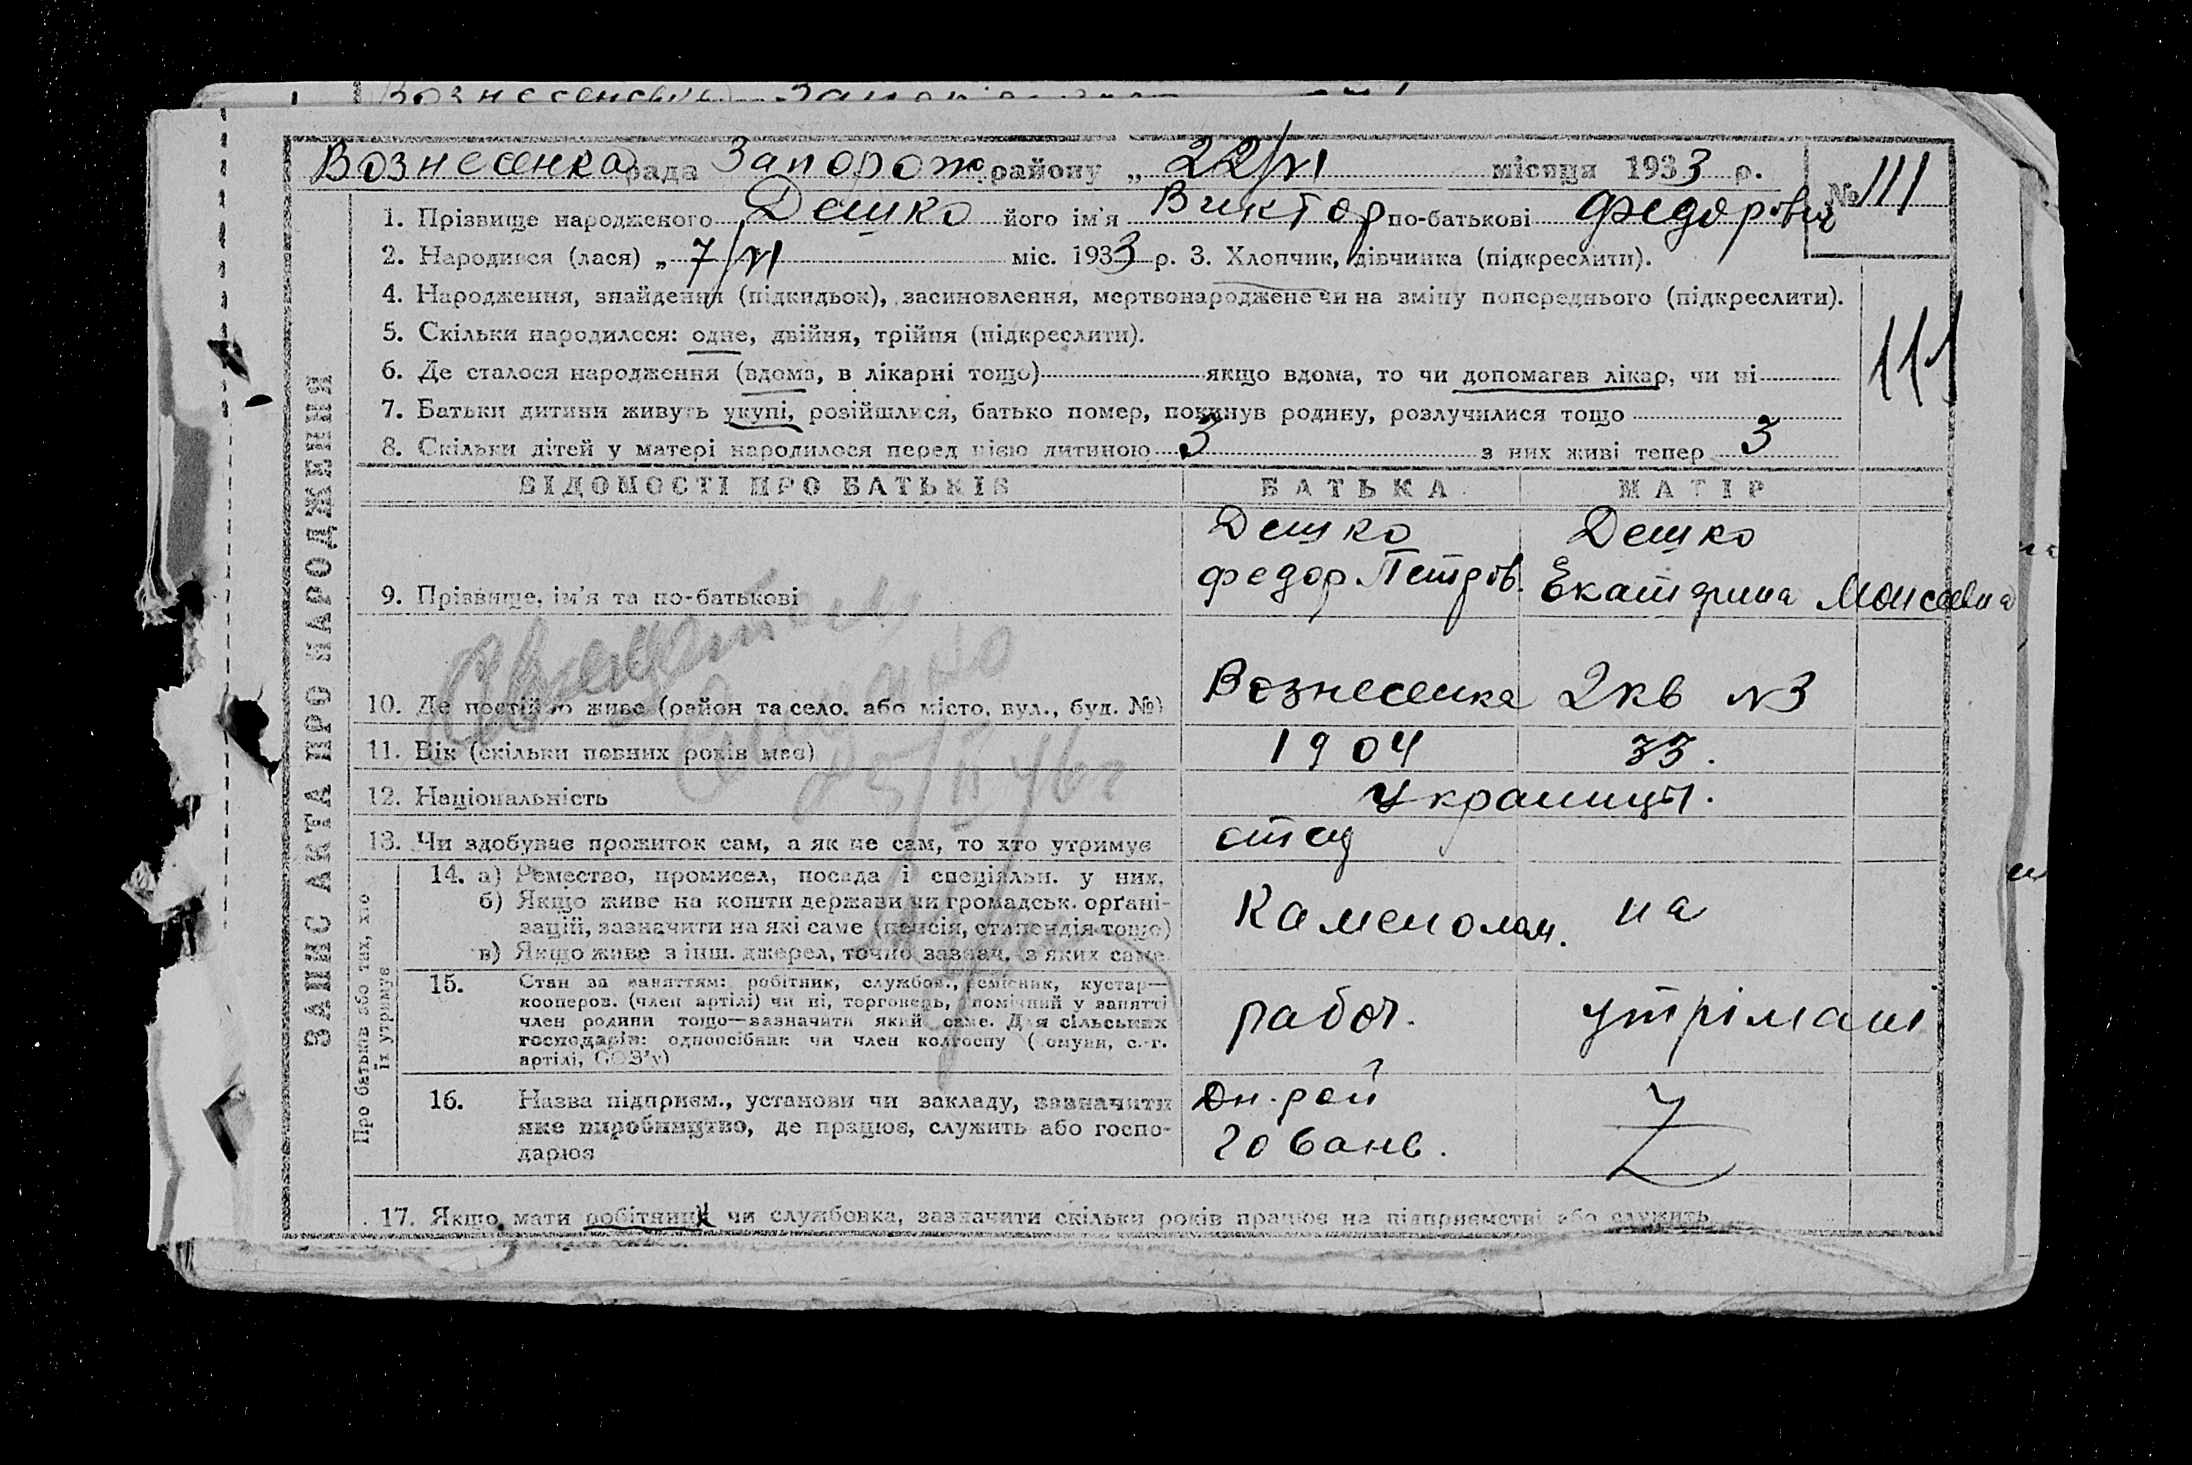 Вознесенка рада Запорож. району „ 22/VI місяця 1933 р. № 111
1. Прізвище народженого Дешко його ім'я Виктор по-батькові Федорович
2. Народився (лася) „ 7/VI міс. 1933 р. 3. Хлопчик, дівчинка (підкреслити).
4. Народження, знайдення (підкидьок), засиновлення, мертвонароджене чи на зміну попереднього (підкреслити).
5. Скільки народилося: одне, двійня, трійня (підкреслити).
111
6. Де сталося народження (вдома, в лікарні тощо) якщо вдома, то чи допомагав лікар, чи ні
7. Батьки дитини живуть укупі, розійшлися, батько помер, покинув родину, розлучилися тощо
8. Скільки дітей у матері народилося перед цією дитиною 3 з них живі тепер 3
ЗАПИС АКТА ПРО НАРОДЖЕННЯ
ВІДОМОСТІ ПРО БАТЬКІВ БАТЬКА МАТІР
9. Прізвище, ім'я та по-батькові
Дешко
Федор Петров.
Дешко
Екатерина Моисеевна
10. Де постійно живе (район та село, або місто, вул., буд. №)
Вознесенка 2кв №3
11. Вік (скільки повних років має) 1904 33.
12. Національність Украинцы.
13. Чи здобуває прожиток сам, а як не сам, то хто утримує отец
Про батьків або тих, хто
їх утримує
14. а) Ремество, промисел, посада і спеціяльн. у них.
б) Якщо живе на кошти держави чи громадськ. орґані-
зацій, зазначити на які саме (пенсія, стипендія тощо)
в) Якщо живе з інш. джерел, точно зазнач. з яких саме
Каменолом. на
15. Стан за заняттям: робітник, службов., ремісник, кустар—
кооперов. (член артілі) чи ні, торговець, помічний у занятті
член родини тощо—зазначити який саме. Для сільських
господарів: одноосібник чи член колгоспу (комуни, с.-г.
артілі, СОЗ'у)
рабоч. утрімані
16. Назва підприєм., установи чи закладу, зазначити
яке виробництво, де працює, служить або госпо-
дарює
25/II 46 г
17. Якщо мати робітниця чи службовка, зазначити скільки років працює на підприємстві або служить